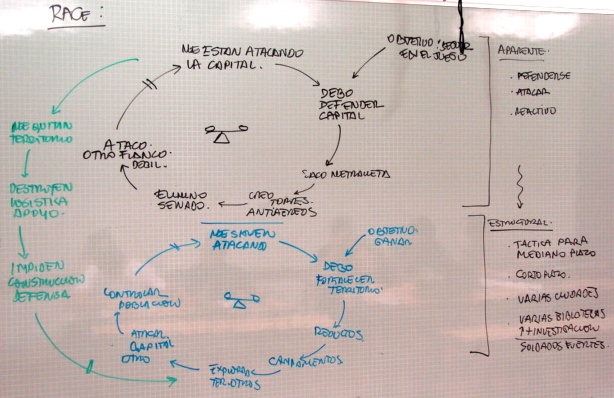 RACE:
ME ESTAN ATACANDO
LA CAPITAL.
OBJETIVO: SEGUIR
EN EL JUEGO
DEBO
DEFENDER
CAPITAL
SACO METRALLETA
CREO
TORRES
ANTIAEREOS
ELIMINO
SENADO.
ATACO
OTRO FLANCO
DEBIL.
ME QUITAN
TERRITORIO
DESTRUYEN
LOGISTICA
APOYO.
IMPIDEN
CONSTRUCCION
DEFENSA
ME SIGUEN
ATACANDO
OBJETIVO:
GANAR
DEBO
FORTALECER
TERRITORIO.
REDUCTOS.
CAMPAMENTOS
EXPLORAR
TER. OTROS
ATACAR
CAPITAL
OTRO
CONTROLAR
POBLACION
APARENTE.
. DEFENDERSE
. ATACAR
. REACTIVO
ESTRUCTURAL.
. TACTICA PARA
MEDIANO PLAZO
. CORTO PLAZO.
. VARIAS CIUDADES
. VARIAS BIBLIOTECAS
↑ + INVESTIGACION
SOLDADOS FUERTES.